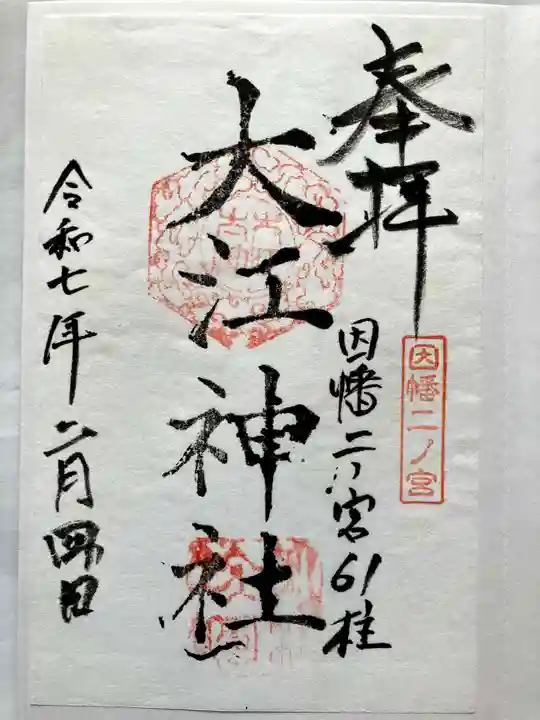 奉拝
因幡二ノ宮
因幡二ノ宮61柱
大江神社
令和七年六月四日